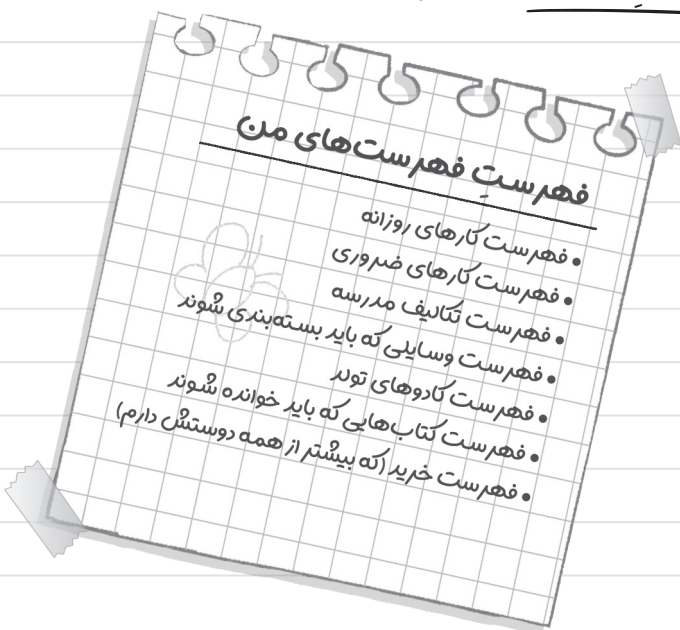 فهرستِ فهرست‌های من
• فهرست کارهای روزانه
• فهرست کارهای ضروری
• فهرست تکالیف مدرسه
• فهرست وسایلی که باید بسته‌بندی شوند
• فهرست کادوهای تولد
• فهرست کتاب‌هایی که باید خوانده شوند
• فهرست خرید (که بیشتر از همه دوستش دارم)